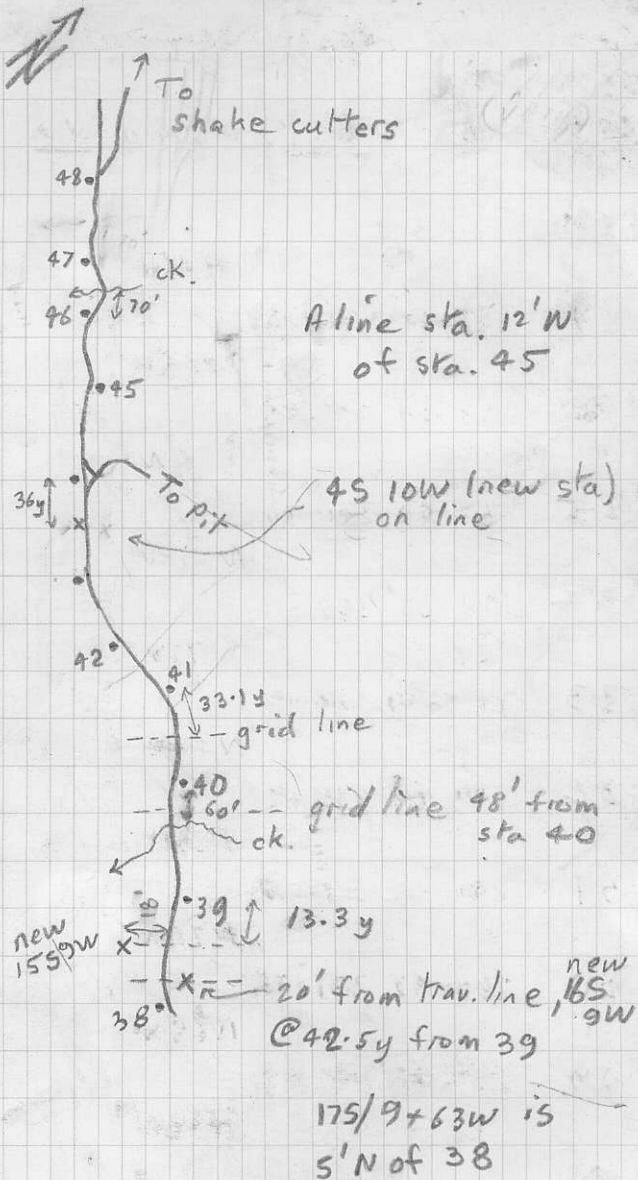 N
To
shake cutters
48
47
ck.
46
70'
A line sta. 12'W
of sta. 45
45
36y
To pit
4S 10W (new sta)
on line
x
42
41
33.1y
grid line
40
60'
grid line 48' from
sta 40
ck.
39
18'
13.3y
new
15S 9W
x
x
20' from trav. line, new
16S
9W
38
@42.5y from 39
17S/9+63W is
5'N of 38